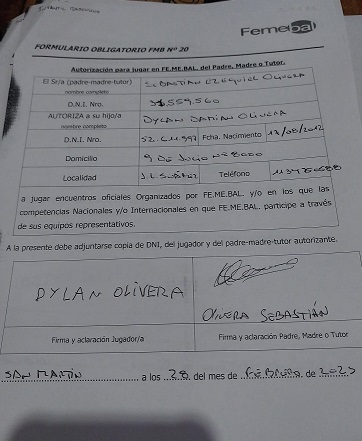 Femebal
FORMULARIO OBLIGATORIO FMB Nº 20
Autorización para jugar en FE.ME.BAL. del Padre, Madre o Tutor.
El Sr/a (padre-madre-tutor) SEBASTIAN EZEQUIEL OLIVERA
nombre completo
D.N.I. Nro.
AUTORIZA a su hijo/a DYLAN DAMIAN OLIVERA
nombre completo
D.N.I. Nro. Fcha. Nacimiento
Domicilio 9 DE JULIO Nº 8000
Localidad Teléfono
a jugar encuentros oficiales Organizados por FE.ME.BAL. y/o en los que las
competencias Nacionales y/o Internacionales en que FE.ME.BAL. participe a través
de sus equipos representativos.
A la presente debe adjuntarse copia de DNI, del jugador y del padre-madre-tutor autorizante.
DYLAN OLIVERA
OLIVERA SEBASTIÁN
Firma y aclaración Jugador/a Firma y aclaración Padre, Madre o Tutor
SAN MARTIN a los 28 del mes de FEBRERO de 2025